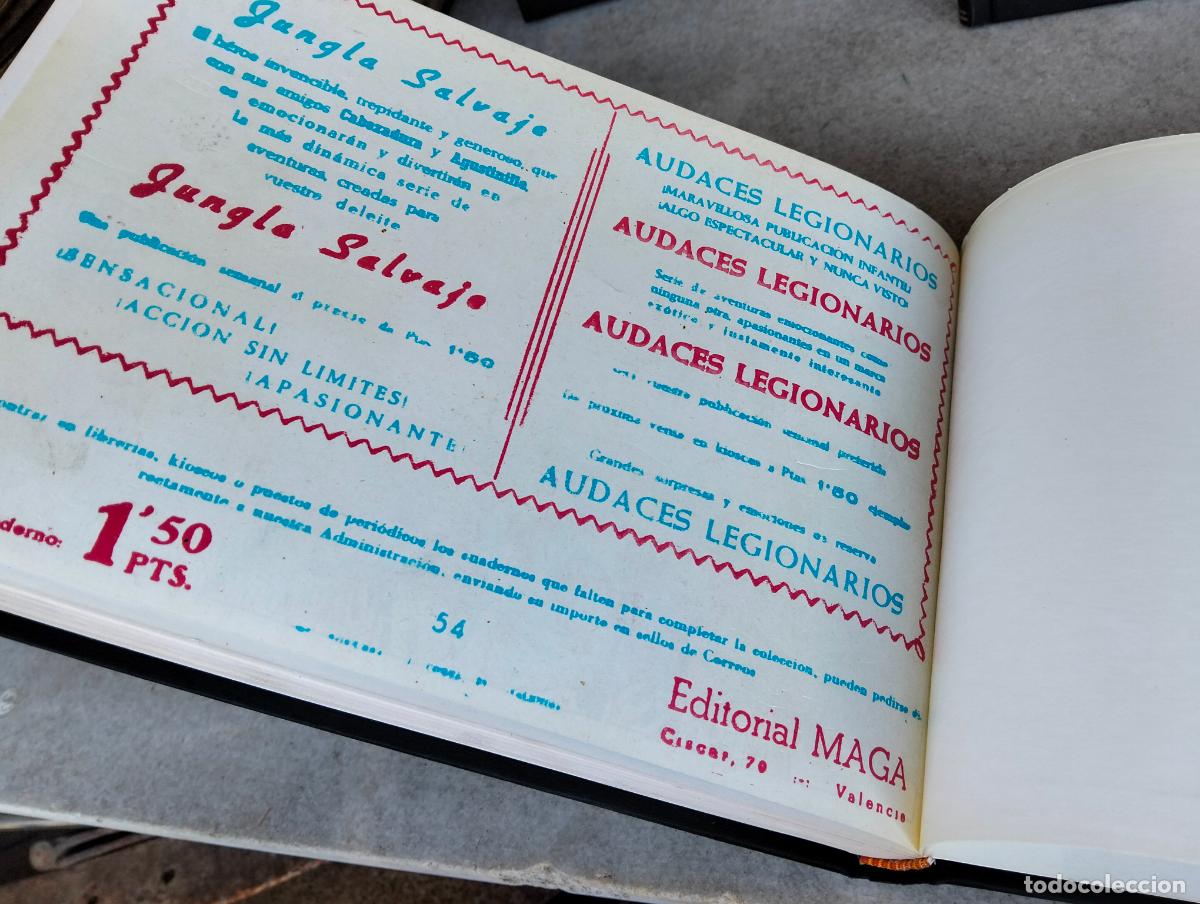 Jungla Salvaje
El héroe invencible, trepidante y generoso, que
con sus amigos Cabezadura y Agustinilla
os emocionarán y divertirán en
la más dinámica serie de
aventuras, creadas para
vuestro deleite
Jungla Salvaje
Una publicación semanal al precio de Ptas. 1'50
¡SENSACIONAL!
¡ACCION SIN LIMITES!
¡APASIONANTE!
AUDACES LEGIONARIOS
¡MARAVILLOSA PUBLICACIÓN INFANTIL!
¡ALGO ESPECTACULAR Y NUNCA VISTO!
AUDACES LEGIONARIOS
Serie de aventuras emocionantes como
ninguna otra, apasionantes en un marco
exótico y justamente interesante
AUDACES LEGIONARIOS
vuestra publicación semanal preferida
De próxima venta en kioscos a Ptas. 1'50 ejemplar
Grandes sorpresas y emociones os reserva
AUDACES LEGIONARIOS
en librerías, kioscos o puestos de periódicos los cuadernos que falten para completar la colección, pueden pedirse
rectamente a nuestra Administración, enviando su importe en sellos de Correos
derno: 1'50 PTS.
54
Editorial MAGA
Ciscar, 70 :-: Valencia
todocoleccion